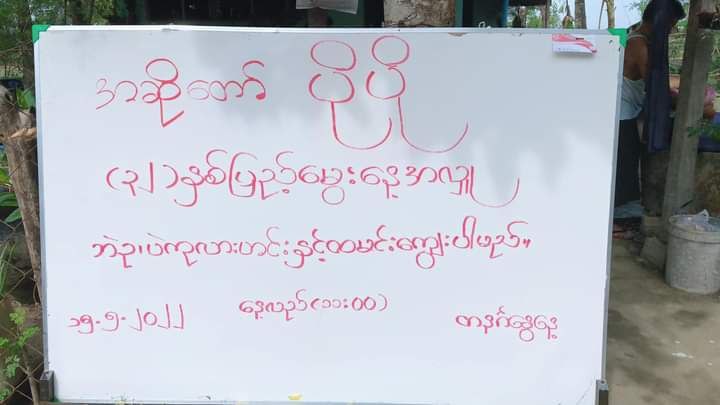 အဆိုတော် ပိုပို
(၃၂)နှစ်ပြည့်မွေးနေ့အလှူ
ဘဲဥ၊ပဲကုလားဟင်းနှင့်ထမင်းကျွေးပါမည်။
၁၅.၅.၂၀၂၂ နေ့လည်(၁၁:၀၀) တနင်္ဂနွေနေ့